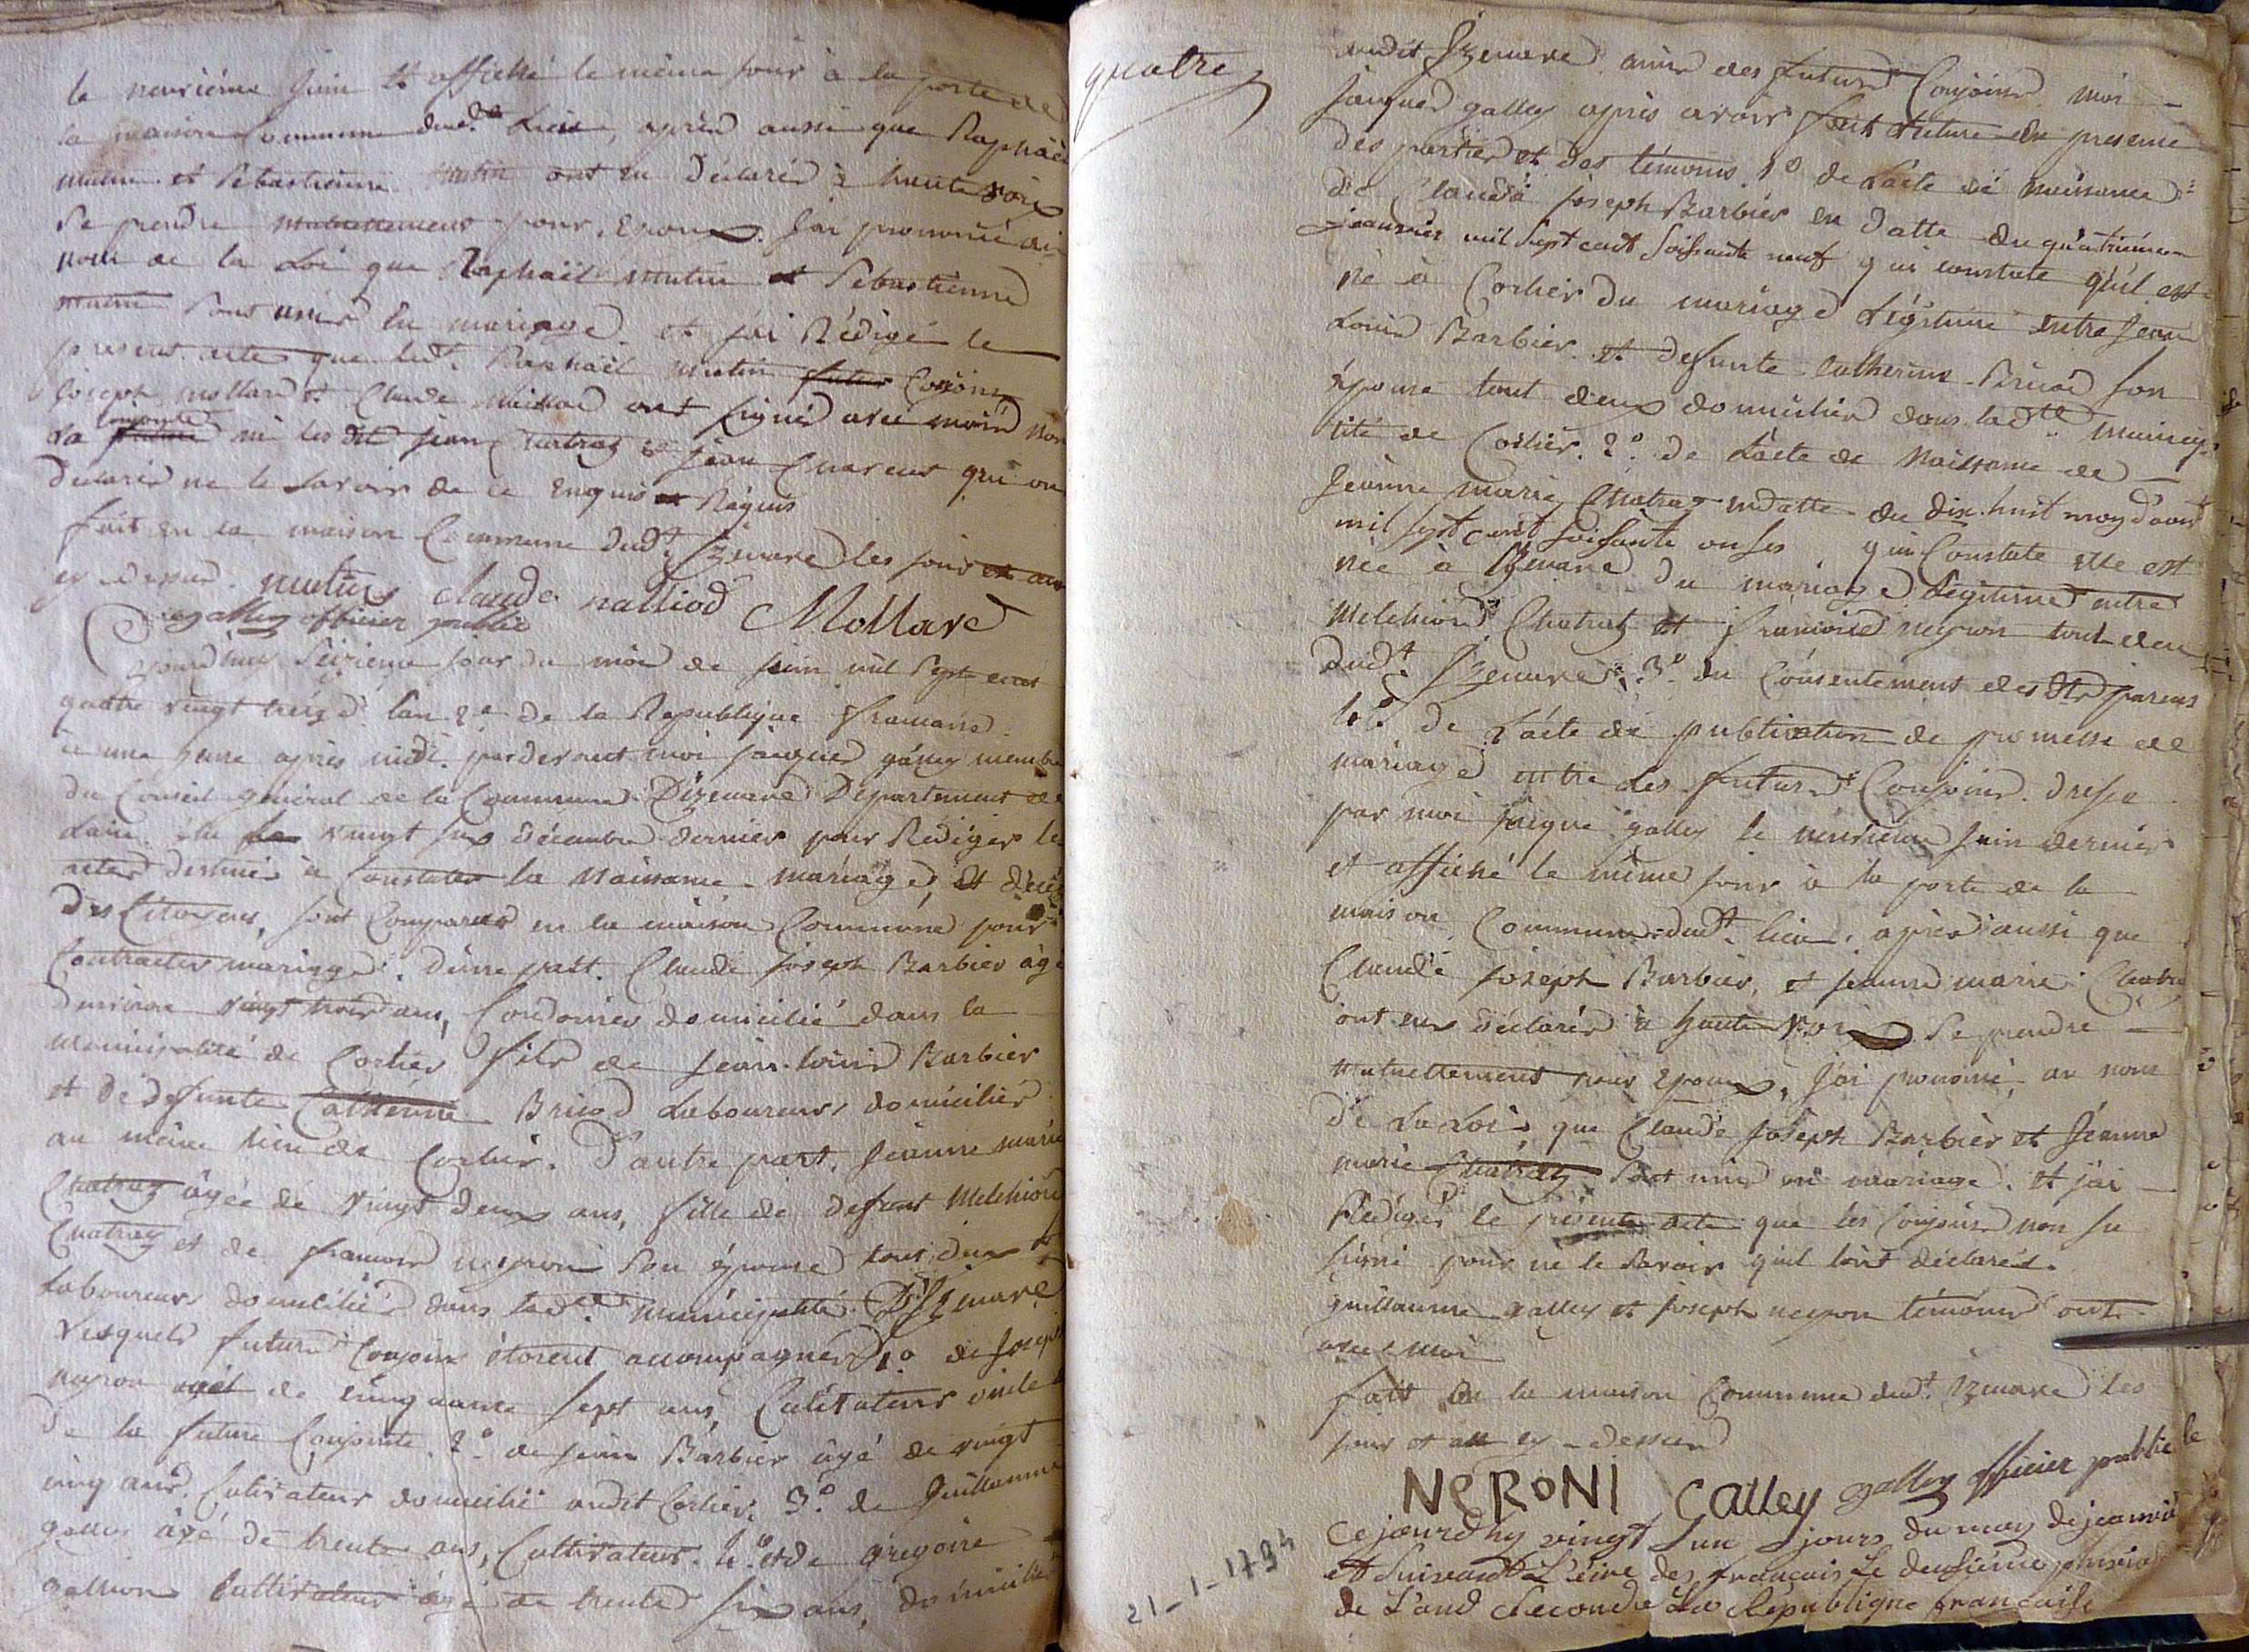 le neuvième Juin et affiché le même jour à la porte de
la maison Commune dud.t Lieu, après aussi que Raphaël
mutin et Sebastienne mutin ont eu Déclaré à haute voix
Se prendre mutuellement pour Epoux. J'ai prononcé au
nom de la Loi que Raphaël mutin et Sebastienne
mutin sont unis en mariage et j'ai Rédigé le
présent acte que led.t Raphaël mutin futur Conjoint
joseph mollard et Claude nallod ont signé avec moi non
La future conjointe ni les dit jean Chatray et jean qui ont
Déclaré ne le savoir de ce Enquis et Requis
fait en la maison Commune dud.t Izenave les jour et an
cy dessus. mutin claude nalliod Mollard
galley officier public
Cejourd'huy Seizieme jour du mois de juin mil Sept cent
quatre vingt treize l'an 2e de la Republique francaise
à une heure après midi. pardevant moi jacques galley membre
du Conseil général de la Commune D'izenave Département de
Lain élu le vingt six décembre dernier pour Rédiger les
actes destinés à Constater la Naissance mariage et décès
Des Citoyens, sont Comparus en la maison Commune pour
Contracter mariage. D'une part. Claude joseph Barbier âgé
Denviron vingt trois ans, Cordonier domicilié dans la
municipalité de Corlier fils de jean louis Barbier
et de défunte Catherine Bricod Laboureurs domiciliés
au même lieu de Corlier. D'autre part. jeanne marie
Chatray âgée de vingt deux ans, fille de defunt Melchior
Chatray et de francoise neyron Son épouse tout deux
laboureurs domiciliés dans lad.te municipalité D'Izenave
Lesquels futurs Conjoins étoient accompagnés 1.o de joseph
neyron agé de cinquante sept ans, Cultivateur oncle
De la future Conjointe 2.o de jean Barbier âgé de vingt
cinq ans Cultivateur domicilié audit Corlier 3.o de Guillaume
galley âgé de trente ans, Cultivateur. 4.o et de grégoire
Cultivateur âgé de trente six ans, domicilié
quatre
audit Izenave amis des futurs Conjoins moi
Jacques galley après avoir fait lecture en presence
des parties et des témoins 1.o de L'acte de naissance
de Claude joseph Barbier en datte du quatrieme
jeanvier mil Sept cent soissante neuf qui constate qu'il est
né à Corlier du mariage Légitime entre Jean
Louis Barbier et defunte Catherine Bricod Son
épouse tout deux domiciliés dans lad.te municipa
lité de Corlier. 2.o de L'acte de Naissance de
Jeanne marie Chatray en datte du dix huit moy d'aout
mil sept cent soissante onses qui Constate elle est
née à Izenave du mariage Légitime entre
Melchior Chatray et francoise neyron tout deux
dud.t Izenave 3.o du Consentement des dts parens
4.o de L'acte de publication de promesse de
mariage entre les futurs Conjoins dressé
par moi jacque galley le neuvieme Juin dernier
et affiché le même jour à la porte de la
maison Commune dud.t lieu, après aussi que
Claude joseph Barbier, et jeanne marie Chatray
ont eu déclaré à haute voix Se prendre
mutuellement pour Epoux, j'ai prononcé au nom
de La Loi que Claude joseph Barbier et jeanne
marie Chatray Sont unis en mariage. et j'ai
Rédigé le présente acte que les Conjoins non su
signé pour ne le Savoir qu'il lont déclarés.
guillaume galley et joseph neyron témoins ont
avec moi
fait en la maison Commune dud.t Izenave les
jour et an cy dessus
NeRONI Calley galley officier public
Cejourdhy vingt un jours du moy de jeanvié
et Suivant L'eire des francais Le deusiéme
de L'and Seconde La République francaise
21-1-1794